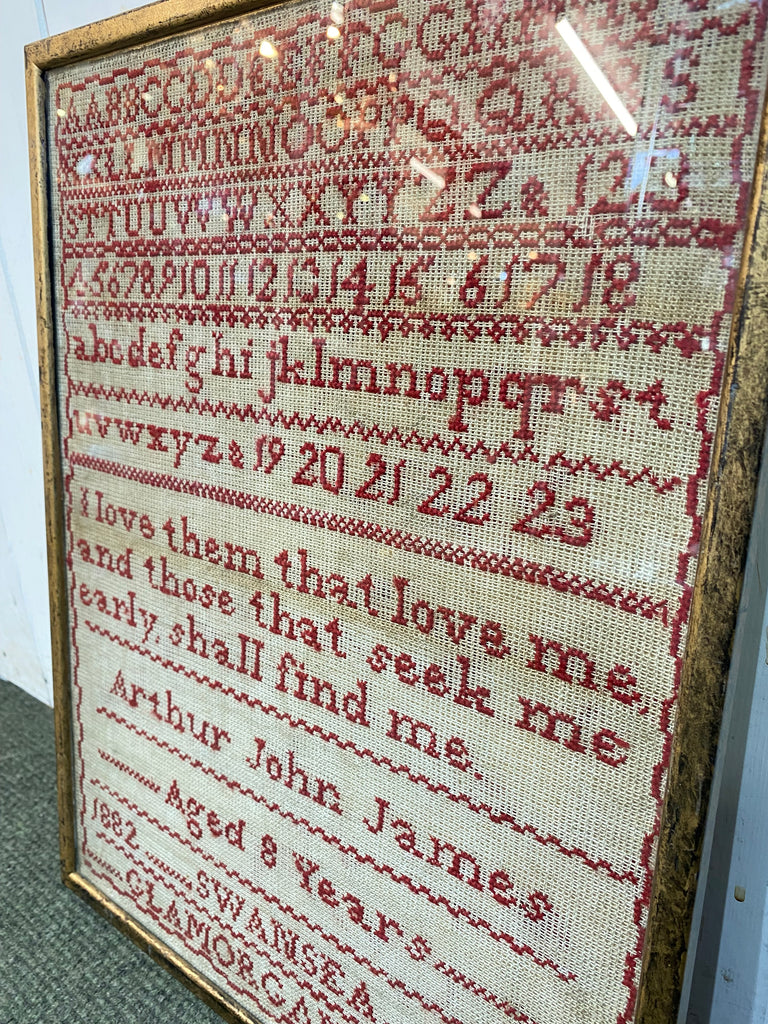 AABBCCDDEEFFGG
LLMMNNOOPPQQRR S
STTUUVVWWXXYYZZ& 123
4 5 6 7 8 9 10 11 12 13 14 15 6 17 18
abcdefghijklmnopqrst
uvwxyz& 19 20 21 22 23
I love them that love me,
and those that seek me
early, shall find me.
Arthur John James
Aged 8 Years
1882 SWANSEA
GLAMORGAN